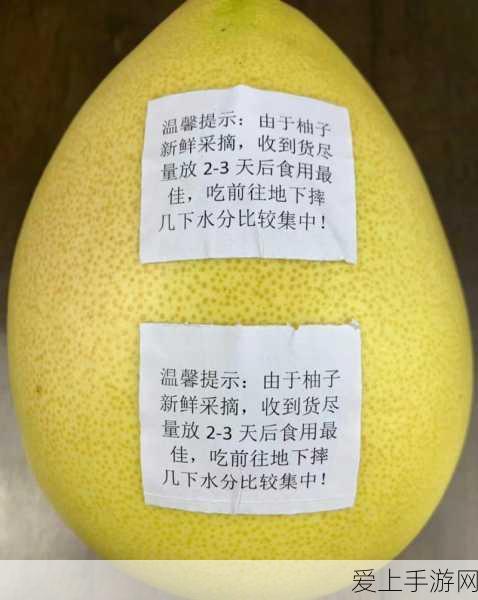 温馨提示：由于柚子
新鲜采摘，收到货尽
量放 2-3 天后食用最
佳，吃前往地下摔
几下水分比较集中！
温馨提示：由于柚子
新鲜采摘，收到货尽
量放 2-3 天后食用最
佳，吃前往地下摔
几下水分比较集中！
爱上手游网